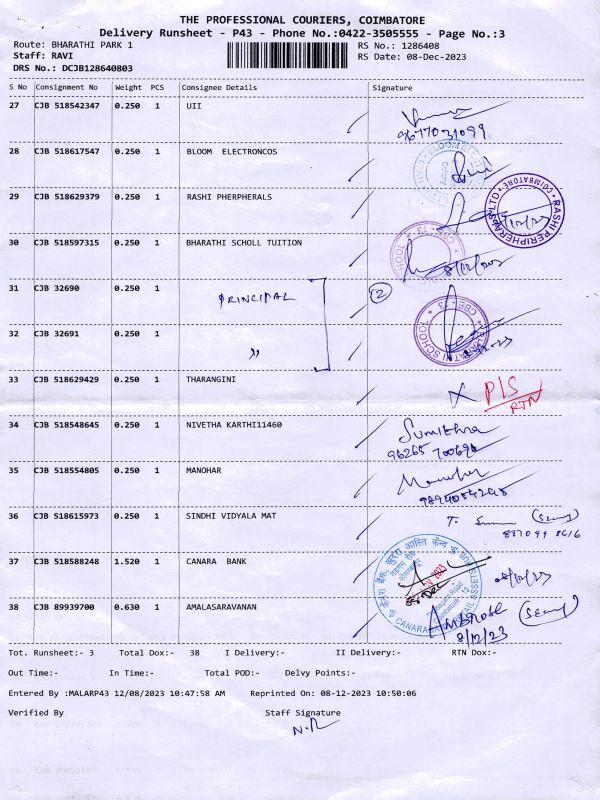 THE PROFESSIONAL COURIERS, COIMBATORE
Delivery Runsheet - P43 - Phone No.:0422-3505555 - Page No.:3
Route: BHARATHI PARK 1
RS No.: 1286408
Staff: RAVI
RS Date: 08-Dec-2023
DRS No.: DCJB128640803
S No Consignment No Weight PCS Consignee Details Signature
27 CJB 518542347 0.250 1 UII
9677031099
28 CJB 518617547 0.250 1 BLOOM ELECTRONCOS
29 CJB 518629379 0.250 1 RASHI PHERPHERALS
RASHI PERIPHERALS LTD COIMBATORE
30 CJB 518597315 0.250 1 BHARATHI SCHOLL TUITION
CBE-13
31 CJB 32690 0.250 1 PRINCIPAL 2
32 CJB 32691 0.250 1 "
BHARATHI SCHOOL CBE-13
33 CJB 518629429 0.250 1 THARANGINI
P/S
RTN
34 CJB 518548645 0.250 1 NIVETHA KARTHI11460
Sumithra
35 CJB 518554805 0.250 1 MANOHAR
Manohar
36 CJB 518615973 0.250 1 SINDHI VIDYALA MAT
887099 8616
37 CJB 518588248 1.520 1 CANARA BANK
08/12/23
38 CJB 89939700 0.630 1 AMALASARAVANAN
AMBROSE
8/12/23
Tot. Runsheet:- 3 Total Dox:- 38 I Delivery:- II Delivery:- RTN Dox:-
Out Time:- In Time:- Total POD:- Delvy Points:-
Entered By :MALARP43 12/08/2023 10:47:58 AM Reprinted On: 08-12-2023 10:50:06
Verified By Staff Signature
N.R